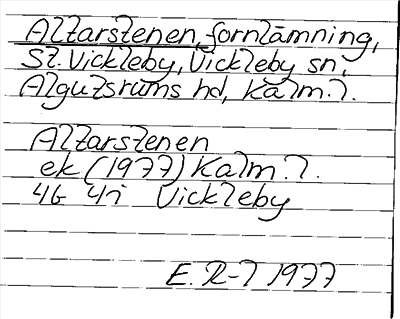 Altarstenen, fornlämning,
St. Vickleby, Vickleby sn,
Algutsrums hd, Kalm. l.
Altarstenen
ek (1977) Kalm. l.
4G 4i Vickleby
E. R-l 1977